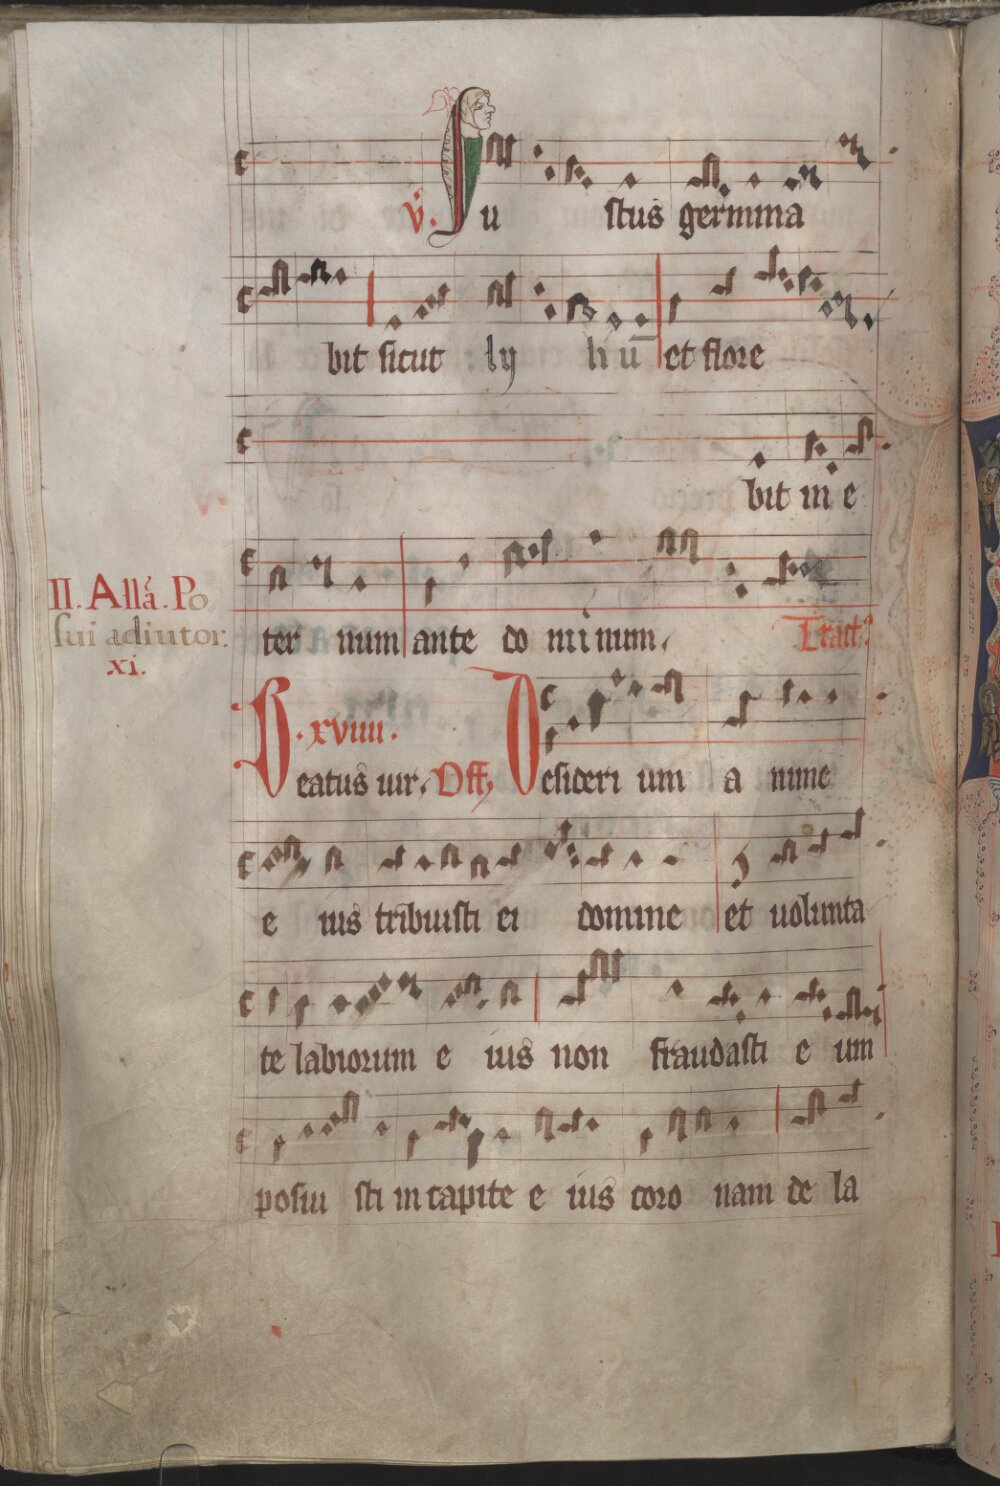 v̄. Ju stus germina
bit sicut ly liū et flore
bit in e
ter num ante do minum. Tract᷒
II. Allā. Po
sui adiutor.
xi.
.xviiii.
Beatus uir. Off, Desideri um a nime
e ius tribuisti ei domine et uolunta
te labiorum e ius non fraudasti e um
posiu sti in capite e ius coro nam de la